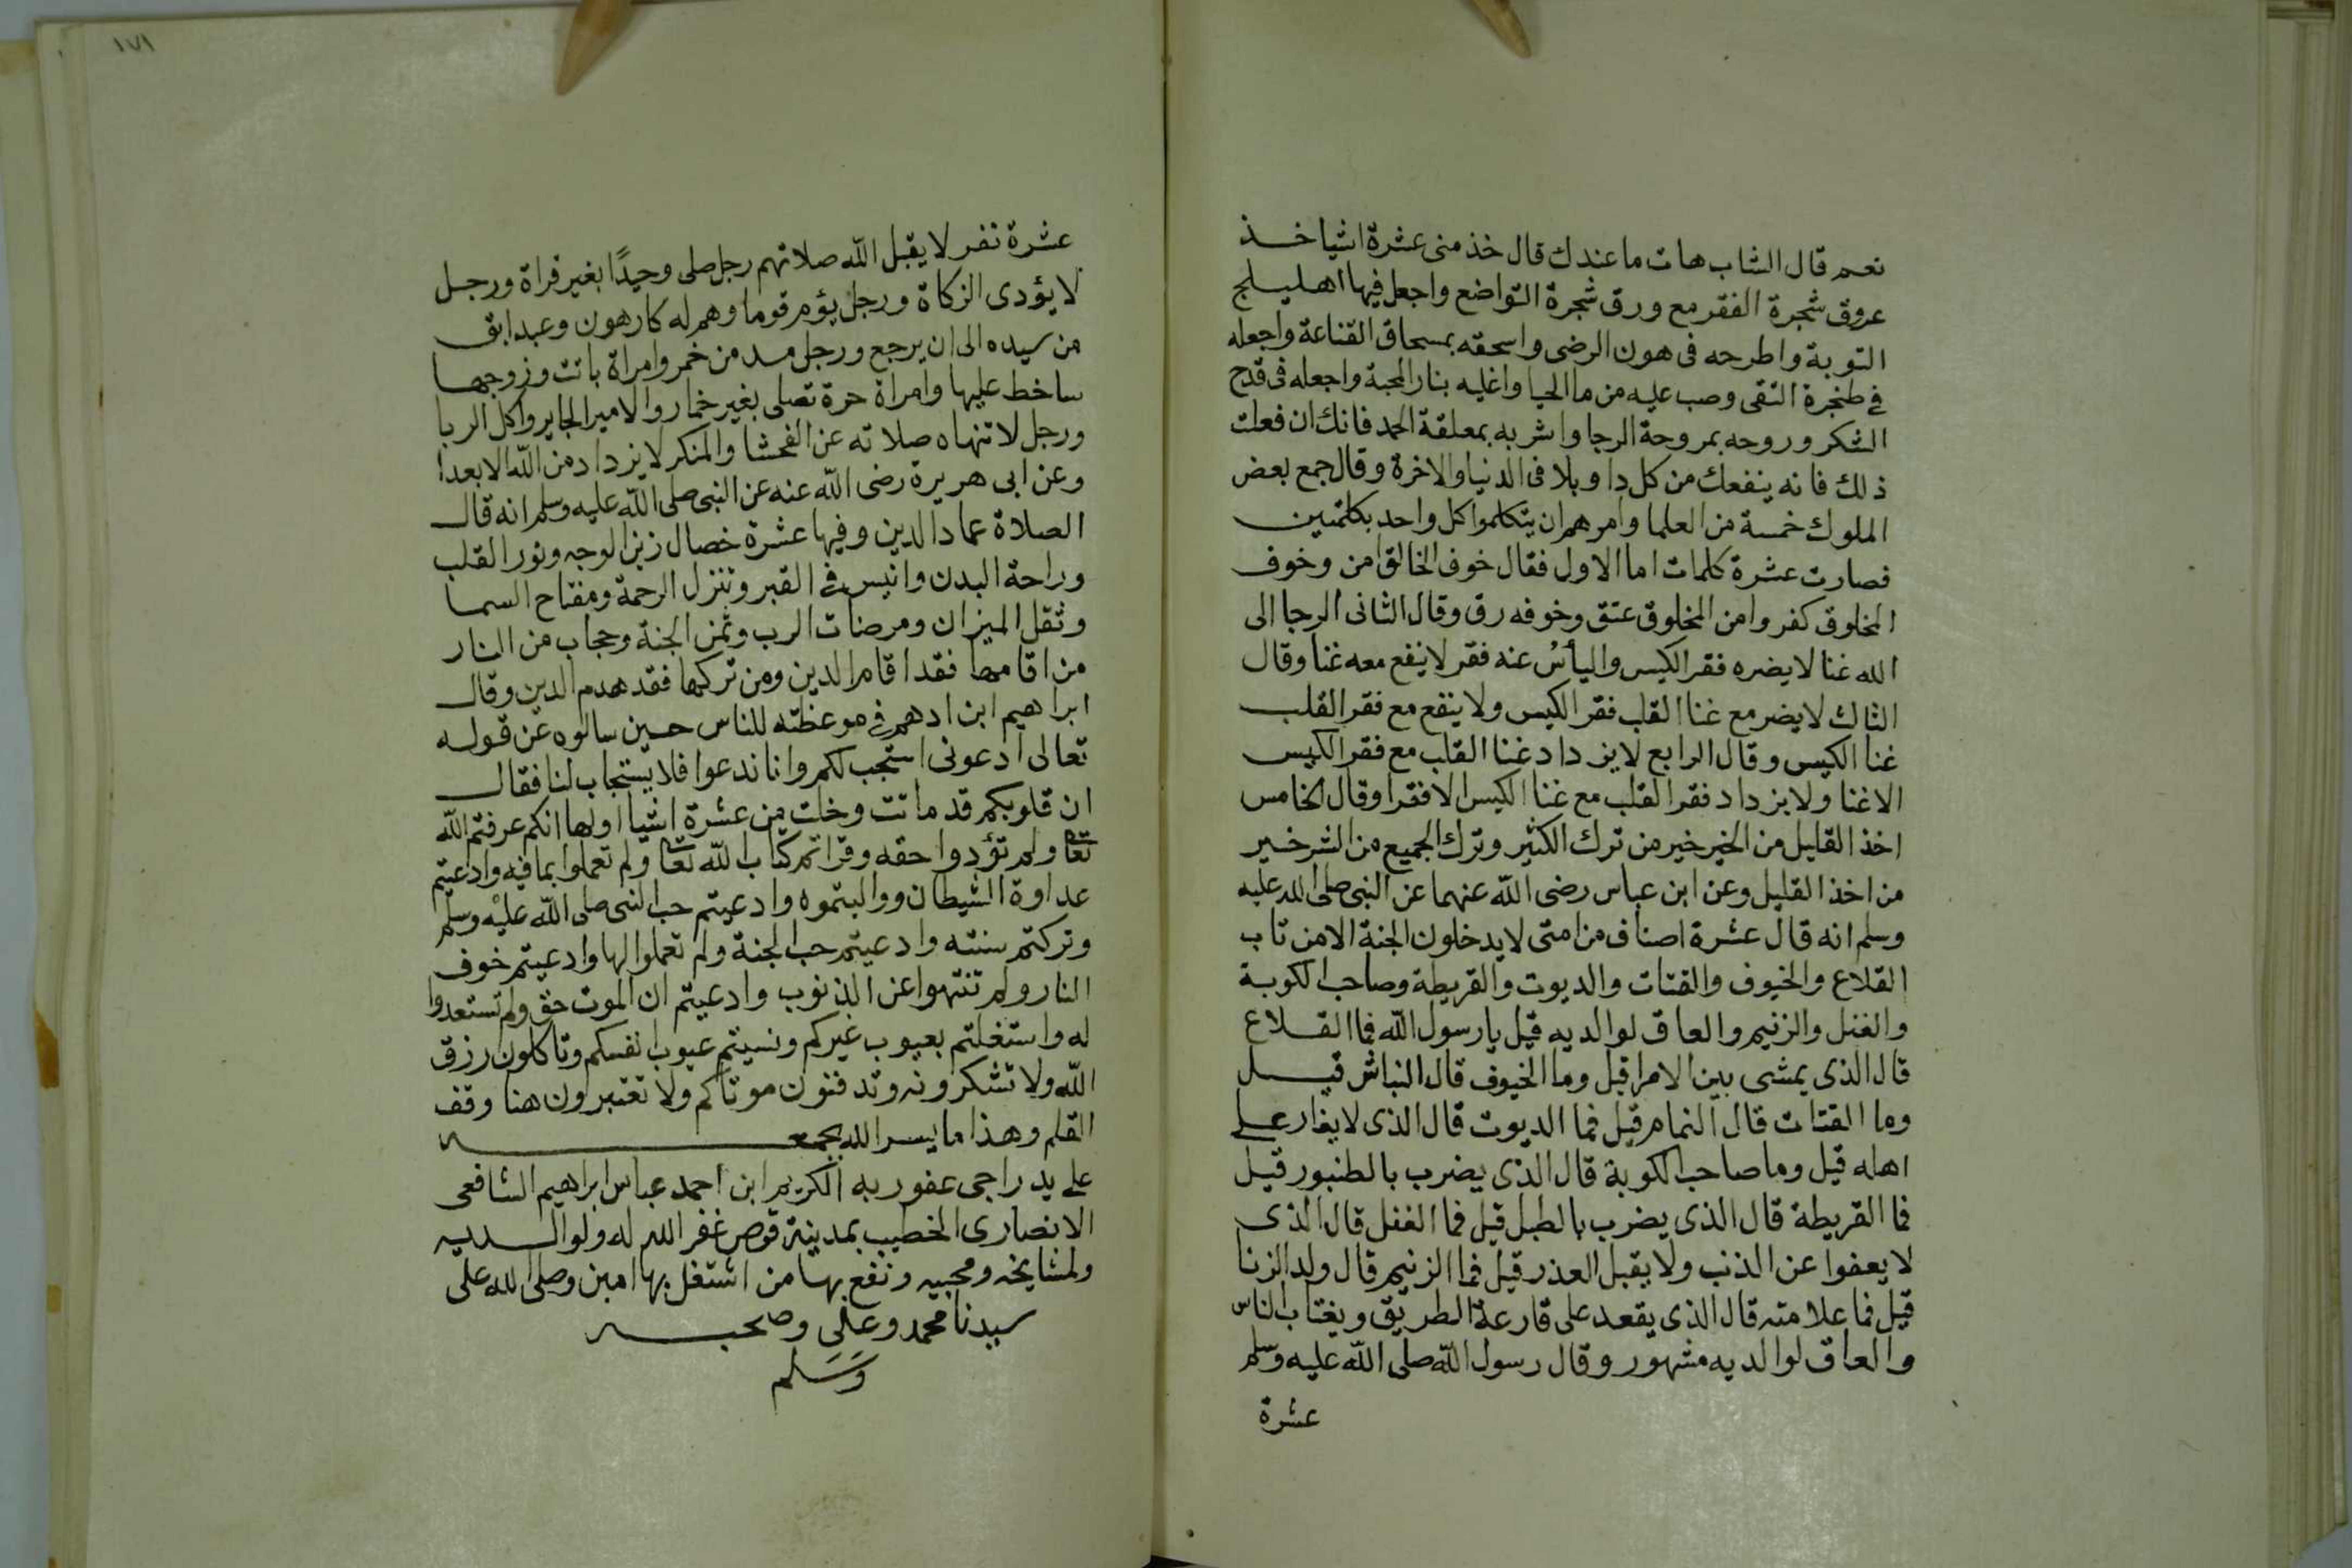 نعم قال الشاب هات ما عندك قال خذ منى عشرة اشيا خذ
عروق شجرة الفقر مع ورق شجرة التواضع واجعل فيها اهليلج
التوبة واطرحه فى هون الرضى واسحقه بمسحاق القناعة واجعله
فى طنجرة التقى وصب عليه من ما الحيا واغليه بنار المحبة واجعله فى قدح
الشكر وروحه بمروحة الرجا واشربه بمعلقة الحمد فانك ان فعلت
ذلك فانه ينفعك من كل دا وبلا فى الدنيا والاخرة وقال جمع بعض
الملوك خمسة من العلما وامرهم ان يتكلموا كل واحد بكلمتين
فصارت عشرة كلمات اما الاول فقال خوف الخالق امن وخوف
المخلوق كفر وامن المخلوق عتق وخوفه رق وقال الثانى الرجا الى
الله غنا لا يضره فقر الكيس واليأس عنه فقر لا ينفع معه غنا وقال
الثالث لا يضر مع غنا القلب فقر الكيس ولا ينفع مع فقر القلب
غنا الكيس وقال الرابع لا يزداد غنا القلب مع فقر الكيس
الا غنا ولا يزداد فقر القلب مع غنا الكيس الا فقرا وقال الخامس
اخذ القليل من الخير خير من ترك الكثير وترك الجميع من الشر خير
من اخذ القليل وعن ابن عباس رضى الله عنهما عن النبى صلى الله عليه
وسلم انه قال عشرة اصناف من امتى لا يدخلون الجنة الا من تاب
القلاع والخيوف والقتات والديوت والقريطة وصاحب الكوبة
والغفل والزنيم والعاق لوالديه قيل يا رسول الله فما القلاع
قال الذى يمشى بين الامرا قيل وما الخيوف قال النباش قيل
وما القتات قال النمام قيل فما الديوت قال الذى لا يغار على
اهله قيل وما صاحب الكوبة قال الذى يضرب بالطنبور قيل
فما القريطة قال الذى يضرب بالطبل قيل فما الغفل قال الذى
لا يعفوا عن الذنب ولا يقبل العذر قيل فما الزنيم قال ولد الزنا
قيل فما علامته قال الذى يقعد على قارعة الطريق ويغتاب الناس
والعاق لوالديه مشهور وقال رسول الله صلى الله عليه وسلم
عشرة
١٧١
عشرة نفر لا يقبل الله صلاتهم رجل صلى وحيدًا بغير قراة ورجل
لا يؤدى الزكاة ورجل يؤم قوما وهم له كارهون وعبد ابق
من سيده الى ان يرجع ورجل مدمن خمر وامراة باتت وزوجها
ساخط عليها وامراة حرة تصلى بغير خمار والامير الجاير واكل الربا
ورجل لا تنهاه صلاته عن الفحشا والمنكر لا يزداد من الله الا بعدا
وعن ابى هريرة رضى الله عنه عن النبى صلى الله عليه وسلم انه قال
الصلاة عماد الدين وفيها عشرة خصال زين الوجه ونور القلب
وراحة البدن وانيس فى القبر وتنزل الرحمة ومفتاح السما
وثقل الميزان ومرضات الرب وثمن الجنة وحجاب من النار
من اقامها فقد اقام الدين ومن تركها فقد هدم الدين وقال
ابراهيم ابن ادهم فى موعظته للناس حين سالوه عن قوله
تعالى ادعونى استجب لكم وانا ندعوا فلا يستجاب لنا فقال
ان قلوبكم قد ماتت وخلت من عشرة اشيا اولها انكم عرفتم الله
تعا ولم تؤدوا حقه وقراتم كتاب الله تعا ولم تعملوا بما فيه وادعيتم
عداوة الشيطان وواليتموه وادعيتم حب النبى صلى الله عليه وسلم
وتركتم سنته وادعيتم حب الجنة ولم تعملوا لها وادعيتم خوف
النار ولم تنتهوا عن الذنوب وادعيتم ان الموت حق ولم تستعدوا
له واشتغلتم بعيوب غيركم ونسيتم عيوب انفسكم وتاكلون رزق
الله ولا تشكرونه وتدفنون موتاكم ولا تعتبرون هنا وقف
القلم وهذا ما يسر الله بجمعه
على يد راجى عفو ربه الكريم ابن احمد عباس ابراهيم الشافعى
الانصارى الخطيب بمدينة قوص غفر الله له ولوالديه
ولمشايخه ومحبيه ونفع بها من اشتغل بها امين وصلى الله على
سيدنا محمد وعلى وصحبه
وسلم